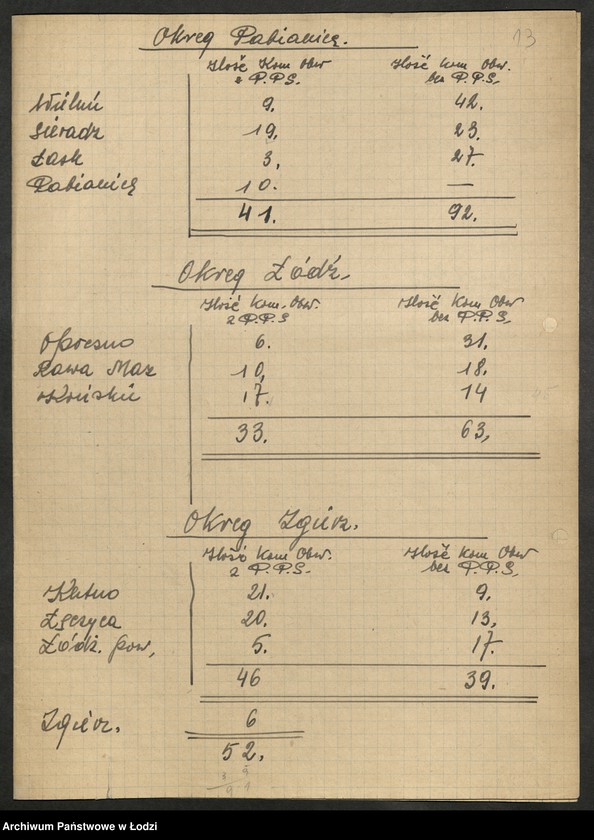 13
Okręg Pabianicę.
Ilość Kom Obw z P.P.S. Ilość Kom Obw. bez P.P.S.
Wieluń 9. 42.
Sieradz 19. 23.
Łask 3. 27.
Pabianicę 10. —
41. 92.
Okręg Łódź.
Ilość Kom. Obw. z P.P.S Ilość Kom Obw bez P.P.S.
Opoczno 6. 31.
Rawa Maz 10. 18.
Końskie 17. 14
33. 63,
Okręg Zgierz.
Ilość Kom Obw. z P.P.S. Ilość Kom Obw bez P.P.S,
Kutno 21. 9.
Łęczyca 20. 13,
Łódź. pow, 5. 17.
46 39.
Zgierz. 6
52.
Archiwum Państwowe w Łodzi